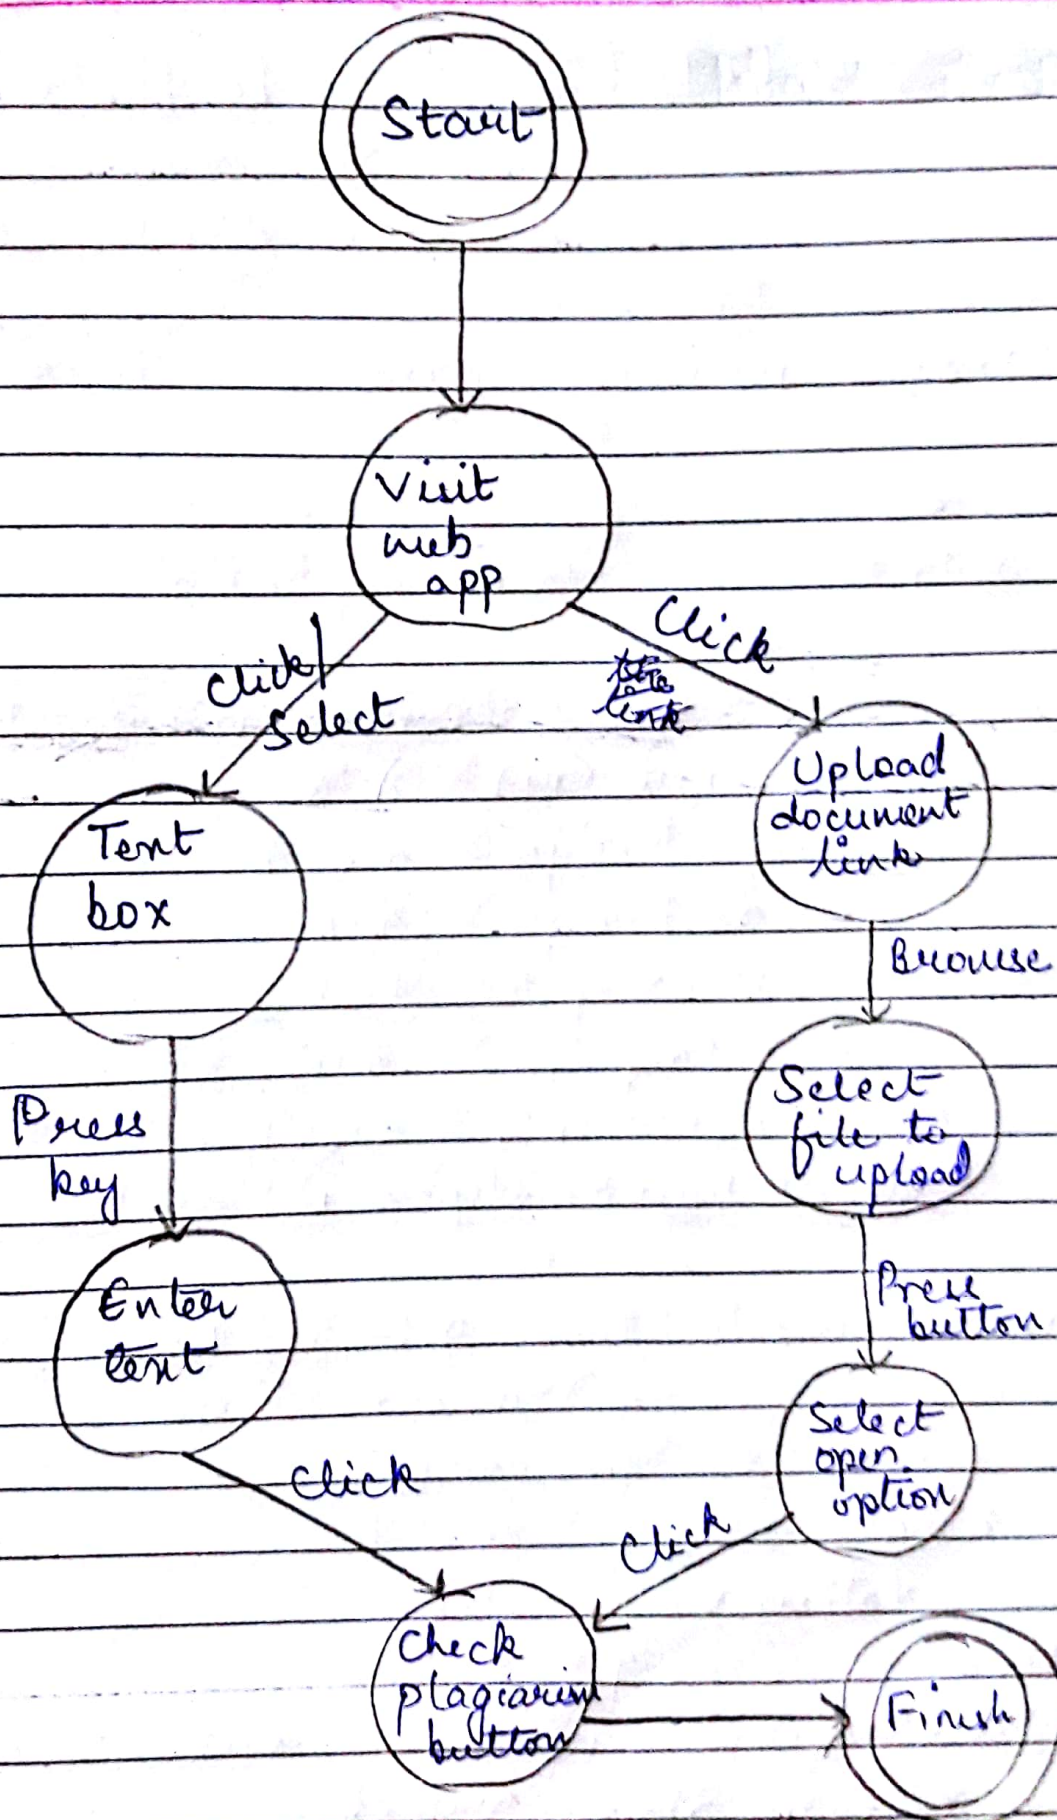 Start
Visit
web
app
Click/
Select
Click
Text
box
Upload
document
link
Browse
Press
key
Select
file to
upload
Enter
text
Press
button
Click
Select
open
option
Click
Check
plagiarism
button
Finish